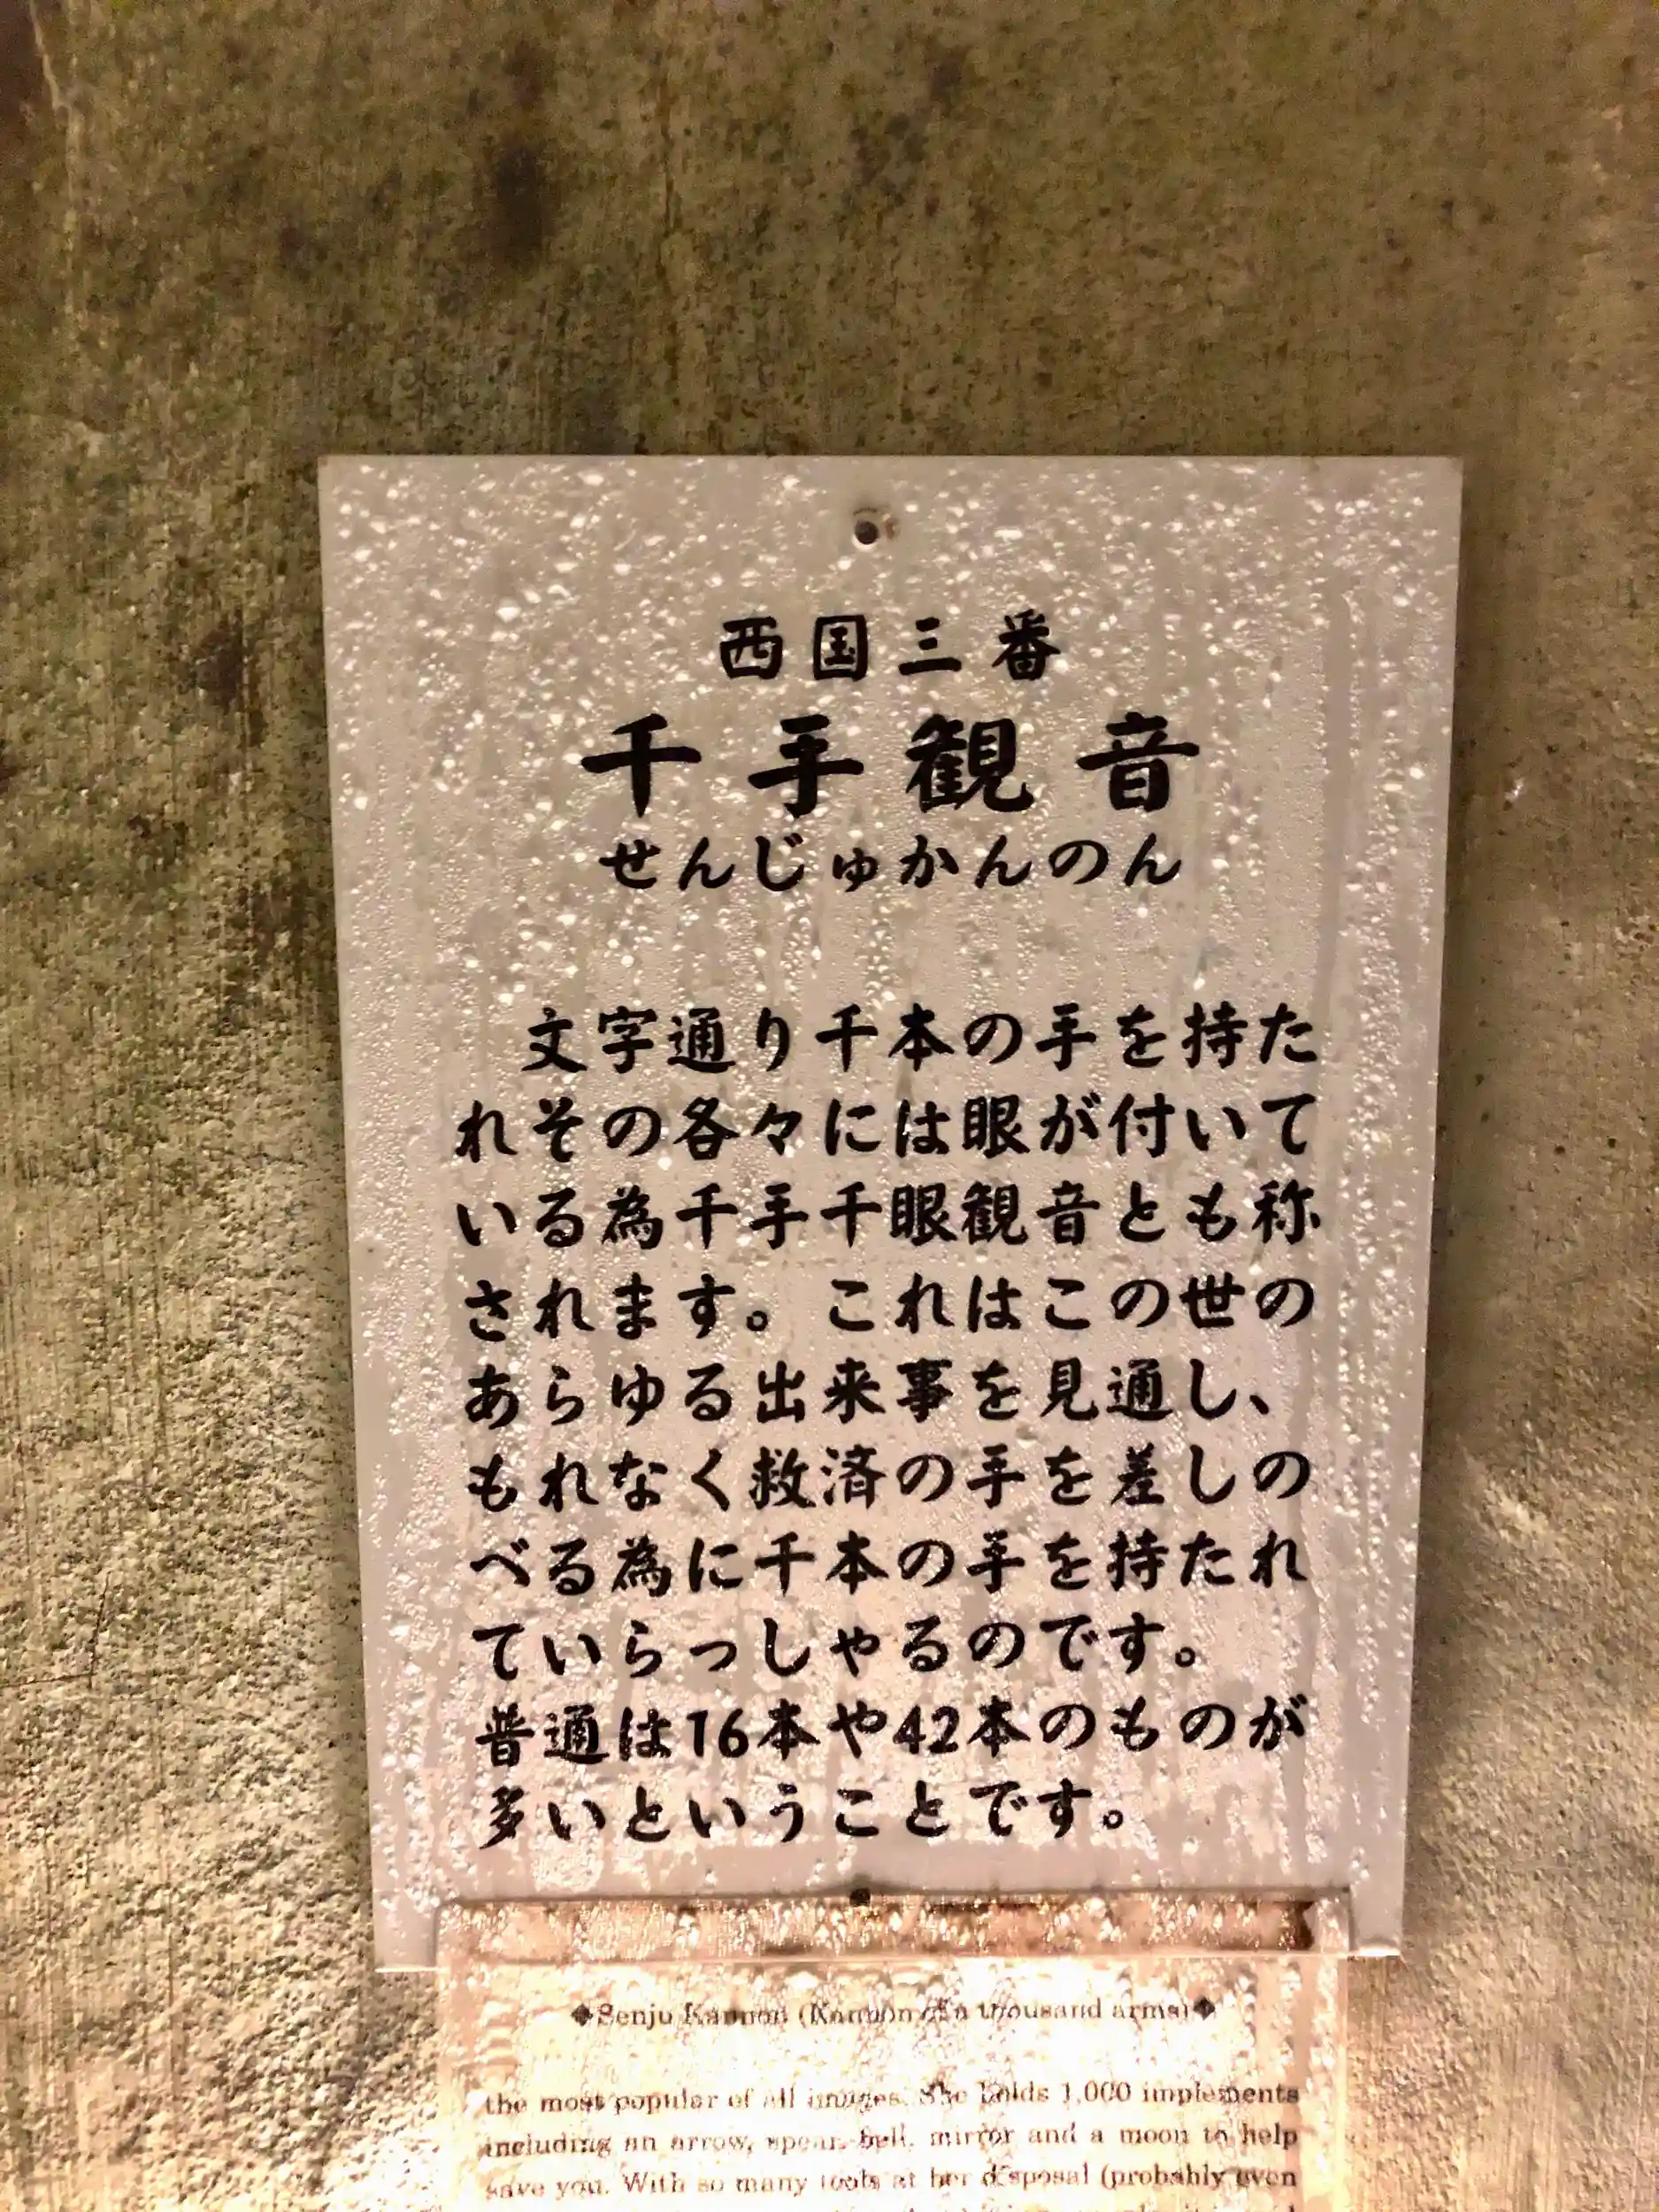 西国三番
千手観音
せんじゅかんのん
文字通り千本の手を持た
れその各々には眼が付いて
いる為千手千眼観音とも称
されます。これはこの世の
あらゆる出来事を見通し、
もれなく救済の手を差しの
べる為に千本の手を持たれ
ていらっしゃるのです。
普通は16本や42本のものが
多いということです。
◆Senju Kannon (Kannon of a thousand arms)◆
the most popular of all images. She holds 1,000 implements
including an arrow, spear, bell, mirror and a moon to help
save you. With so many tools at her disposal (probably even